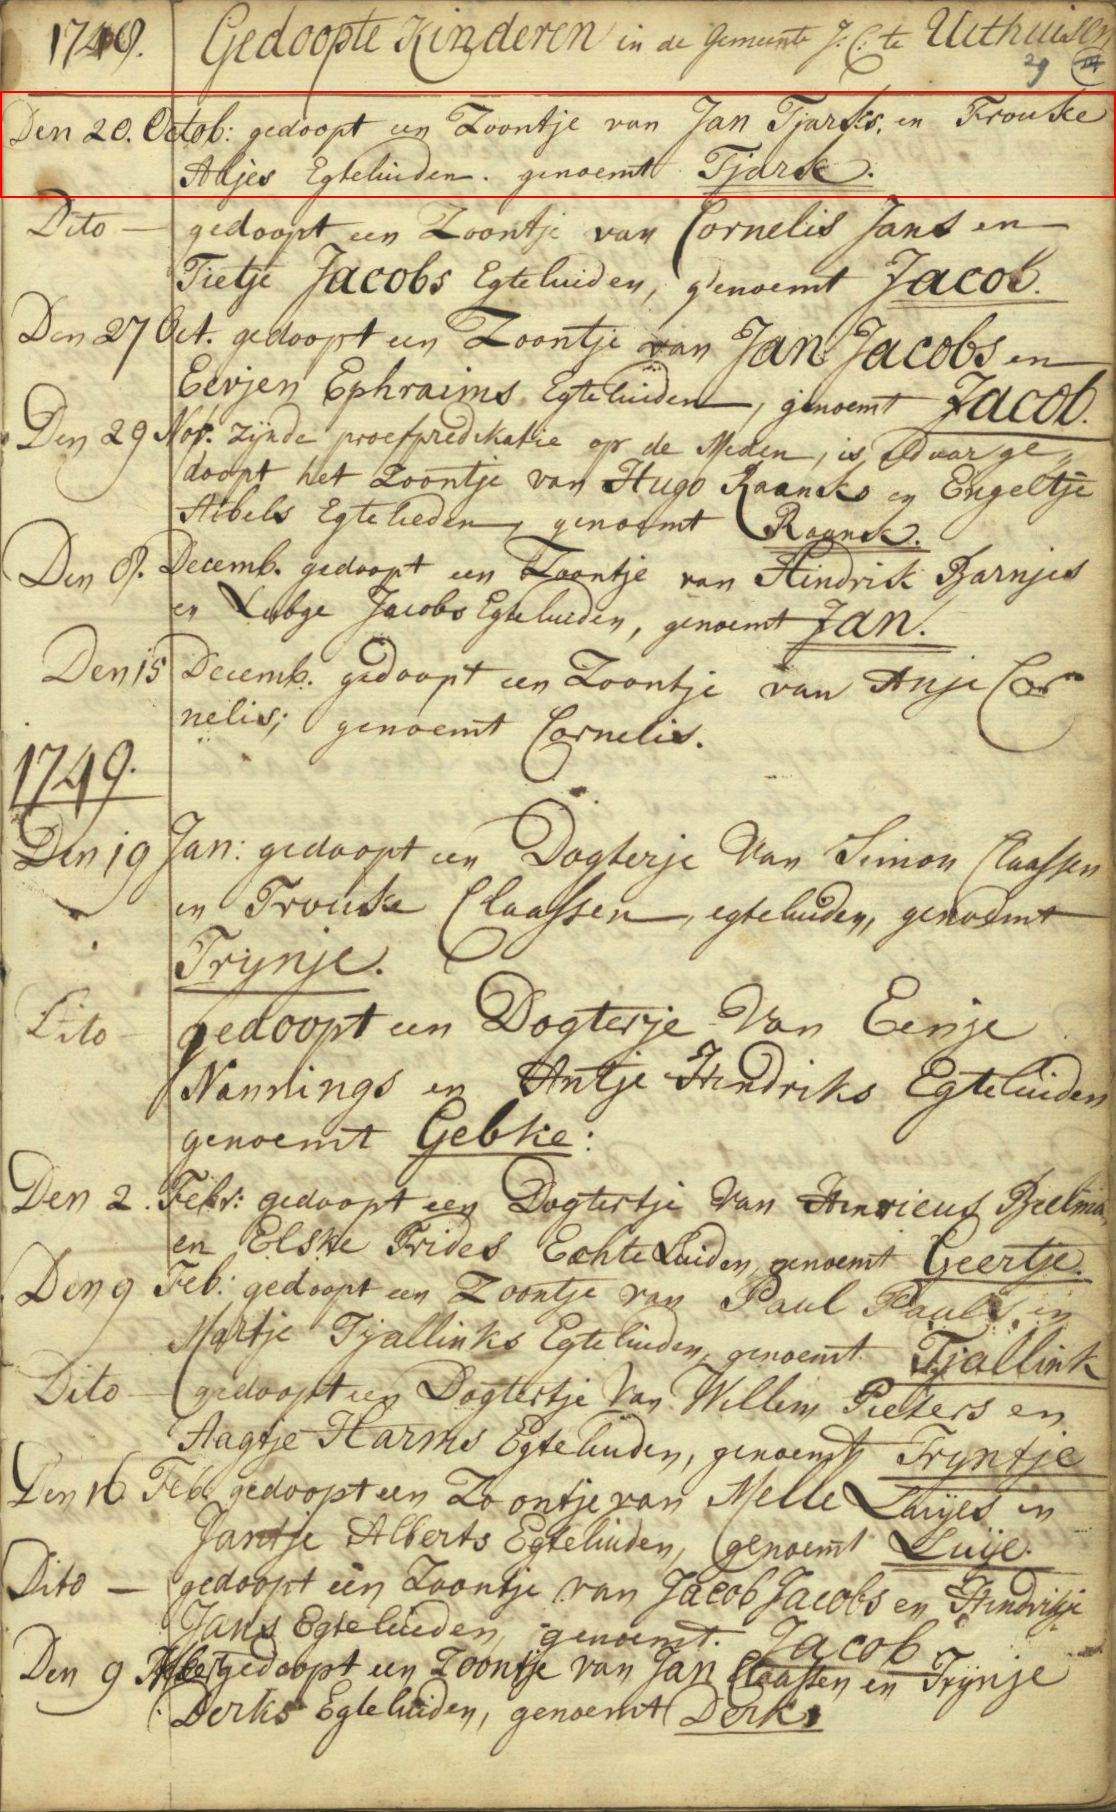 1748. Gedoopte Kinderen in de Gemeente J. C. te Uithuisen
29
Den 20. Octob: gedoopt een Zoontje van Jan Tjarks. en Frouke
Altjes Egteluiden. genoemt Tjark.
Dito — gedoopt een Zoontje van Cornelis Jans en
Tietje Jacobs Egteluiden, genoemt Jacob.
Den 27 Oct. gedoopt een Zoontje van Jan Jacobs en
Eevjen Ephraims Egteluiden, genoemt Jacob.
Den 29 Nov. zijnde proefpredikatie op de Meden, is aldaar ge„
doopt het Zoontje van Hugo Raanks en Engeltje
Aibels Egtelieden, genoemt Raank.
Den 8. Decemb. gedoopt een Zoontje van Hindrik Barnjes
en Lubge Jacobs Egteluiden, genoemt Jan.
Den 15 Decemb. gedoopt een Zoontje van Anje Cor
nelis; genoemt Cornelis.
1749.
Den 19 Jan: gedoopt een Dogterje Van Simon Claassen
en Trouke Claassen, egteluiden, genoemt
Trynje.
Dito — gedoopt een Dogterje Van Eenje
Nannings en Antje Hendriks Egteluiden
genoemt Gebke:
Den 2. Febr: gedoopt een Dogtertje Van Henricus
en Elske Frides Echte Luiden, genoemt Geertje.
Den 9 Feb: gedoopt een Zoontje van Paul Pauls, en
Martje Tjallinks Egteluiden, genoemt Tjallink
Dito — gedoopt een Dogtertje Van Willem Pieters en
Aagtje Harms Egteluiden, genoemt Tryntje
Den 16 Feb. gedoopt een Zoontje van Melle Luijes en
Jantje Alberts Egteluiden, genoemt Luije.
Dito — gedoopt een Zoontje van Jacob Jacobs en Hindrikje
Jans Egteluiden, genoemt. Jacob
Den 9 gedoopt een Zoontje van Jan Claassen en Trynje
Derks Egteluiden, genoemt Derk.